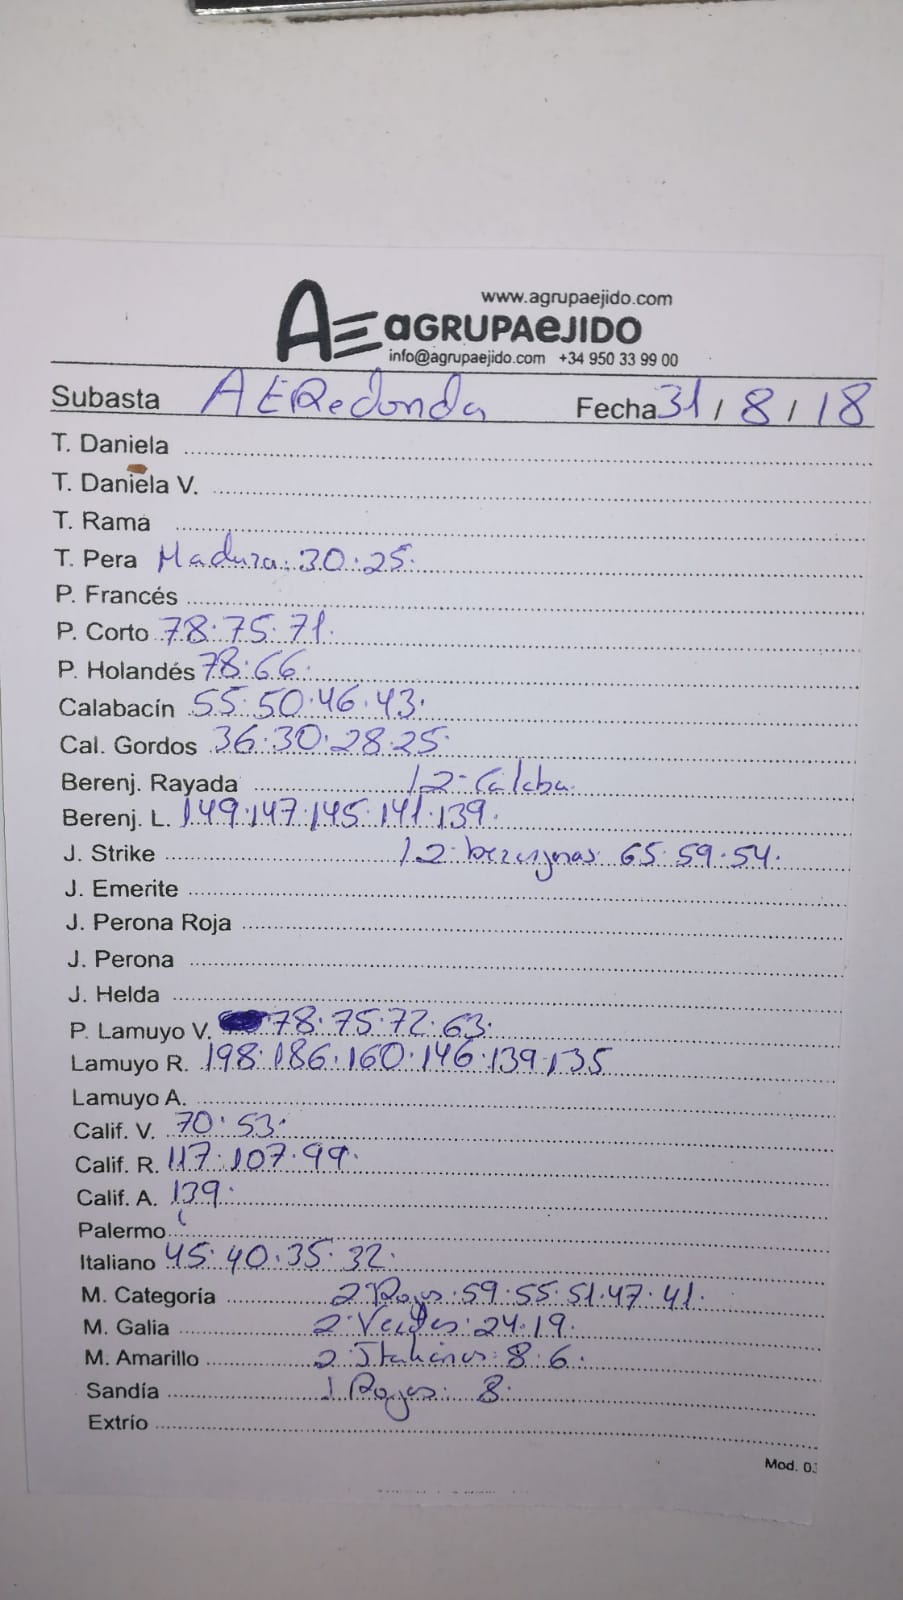 www.agrupaejido.com
AE aGRUPAeJIDO
info@agrupaejido.com +34 950 33 99 00
Subasta AERedonda Fecha 31 / 8 / 18
T. Daniela
T. Daniela V.
T. Rama
T. Pera Madura: 30.25.
P. Francés
P. Corto 78.75.71.
P. Holandés 78.66.
Calabacín 55.50.46.43.
Cal. Gordos 36.30.28.25.
Berenj. Rayada 12. Calaba.
Berenj. L. 149.147.145.141.139.
J. Strike 12. berenjenas. 65.59.54.
J. Emerite
J. Perona Roja
J. Perona
J. Helda
P. Lamuyo V. 78.75.72.63.
Lamuyo R. 198.186.160.146.139.135
Lamuyo A.
Calif. V. 70.53.
Calif. R. 117.107.99.
Calif. A. 139.
Palermo
Italiano 45.40.35.32.
M. Categoría 2 Rojos: 59.55.51.47.41.
M. Galia 2. Verdes: 24.19.
M. Amarillo 2 Italianos: 8.6.
Sandía 1 Rojos: 8.
Extrío